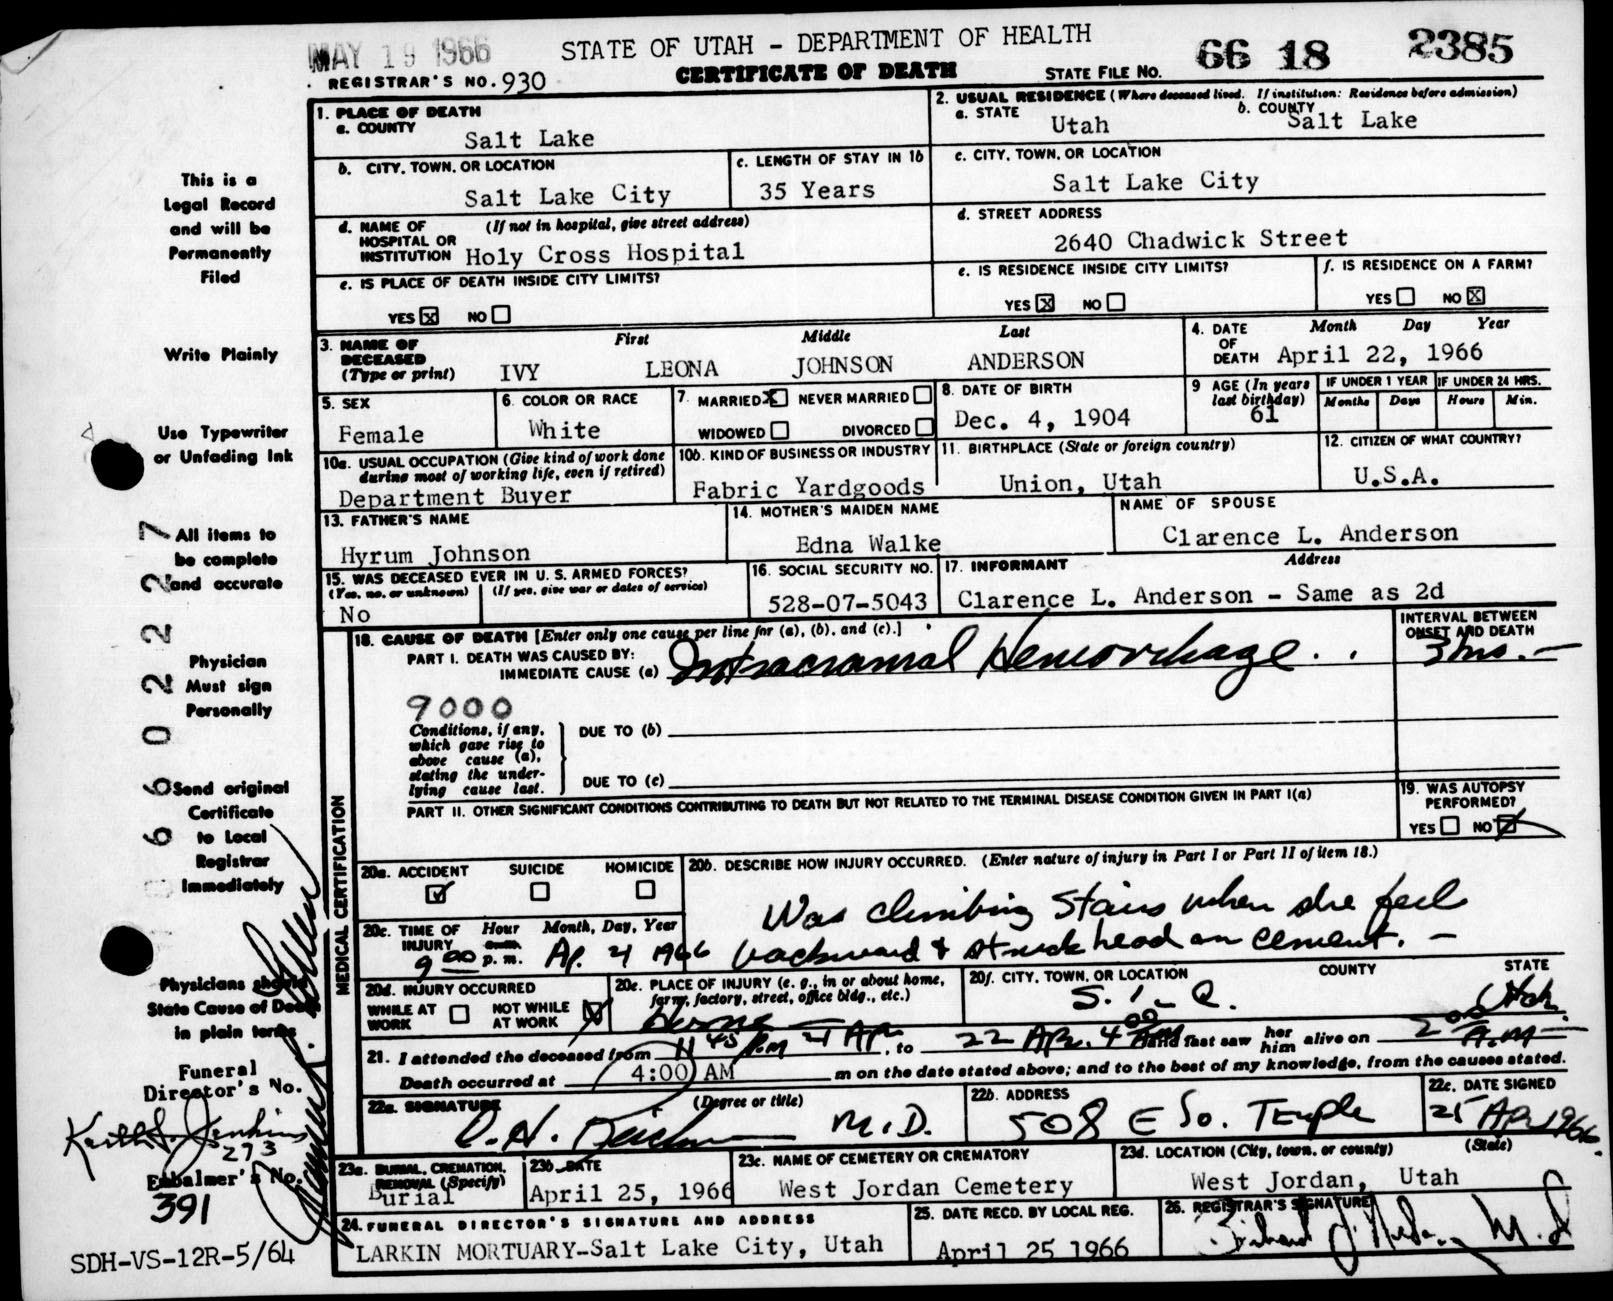 MAY 19 1966
STATE OF UTAH - DEPARTMENT OF HEALTH
66 18 2385
REGISTRAR'S NO. 930
CERTIFICATE OF DEATH
STATE FILE NO.
1. PLACE OF DEATH
a. COUNTY
Salt Lake
2. USUAL RESIDENCE (Where deceased lived. If institution: Residence before admission)
a. STATE
Utah
b. COUNTY
Salt Lake
b. CITY, TOWN, OR LOCATION
Salt Lake City
c. LENGTH OF STAY IN 1b
35 Years
c. CITY, TOWN, OR LOCATION
Salt Lake City
d. NAME OF HOSPITAL OR INSTITUTION
(If not in hospital, give street address)
Holy Cross Hospital
d. STREET ADDRESS
2640 Chadwick Street
e. IS PLACE OF DEATH INSIDE CITY LIMITS?
YES ☒ NO ☐
e. IS RESIDENCE INSIDE CITY LIMITS?
YES ☒ NO ☐
f. IS RESIDENCE ON A FARM?
YES ☐ NO ☒
3. NAME OF DECEASED (Type or print)
First Middle Last
IVY LEONA JOHNSON ANDERSON
4. DATE OF DEATH
Month Day Year
April 22, 1966
5. SEX
Female
6. COLOR OR RACE
White
7. MARRIED ☒ NEVER MARRIED ☐
WIDOWED ☐ DIVORCED ☐
8. DATE OF BIRTH
Dec. 4, 1904
9 AGE (In years last birthday)
61
IF UNDER 1 YEAR
Months Days
IF UNDER 24 HRS.
Hours Min.
10a. USUAL OCCUPATION (Give kind of work done during most of working life, even if retired)
Department Buyer
10b. KIND OF BUSINESS OR INDUSTRY
Fabric Yardgoods
11. BIRTHPLACE (State or foreign country)
Union, Utah
12. CITIZEN OF WHAT COUNTRY?
U.S.A.
13. FATHER'S NAME
Hyrum Johnson
14. MOTHER'S MAIDEN NAME
Edna Walke
NAME OF SPOUSE
Clarence L. Anderson
15. WAS DECEASED EVER IN U. S. ARMED FORCES?
(Yes, no, or unknown) (If yes, give war or dates of service)
No
16. SOCIAL SECURITY NO.
528-07-5043
17. INFORMANT Address
Clarence L. Anderson - Same as 2d
MEDICAL CERTIFICATION
18. CAUSE OF DEATH [Enter only one cause per line for (a), (b), and (c).]
PART I. DEATH WAS CAUSED BY:
IMMEDIATE CAUSE (a) Intracranial Hemorrhage
INTERVAL BETWEEN ONSET AND DEATH
3 hrs.
9000
Conditions, if any, which gave rise to above cause (a), stating the underlying cause last.
DUE TO (b)
DUE TO (c)
PART II. OTHER SIGNIFICANT CONDITIONS CONTRIBUTING TO DEATH BUT NOT RELATED TO THE TERMINAL DISEASE CONDITION GIVEN IN PART I(a)
19. WAS AUTOPSY PERFORMED?
YES ☐ NO ☒
20a. ACCIDENT ☑ SUICIDE ☐ HOMICIDE ☐
20b. DESCRIBE HOW INJURY OCCURRED. (Enter nature of injury in Part I or Part II of item 18.)
Was climbing stairs when she feel
backward & struck head on cement. -
20c. TIME OF INJURY
Hour Month, Day, Year
9 00 p. m. Ap. 21 1966
20d. INJURY OCCURRED
WHILE AT WORK ☐ NOT WHILE AT WORK ☒
20e. PLACE OF INJURY (e. g., in or about home, farm, factory, street, office bldg., etc.)
Home
20f. CITY, TOWN, OR LOCATION COUNTY STATE
S. L. C. Utah
21. I attended the deceased from 11 45 P.M 21 Apr, to 22 Apr. 4 00 AM and last saw her him alive on 2 00 A.M
Death occurred at 4:00 AM m on the date stated above; and to the best of my knowledge, from the causes stated.
22a. SIGNATURE (Degree or title)
M.D.
22b. ADDRESS
508 E So. Temple
22c. DATE SIGNED
25 Apr 1966
23a. BURIAL, CREMATION, REMOVAL (Specify)
Burial
23b. DATE
April 25, 1966
23c. NAME OF CEMETERY OR CREMATORY
West Jordan Cemetery
23d. LOCATION (City, town, or county) (State)
West Jordan, Utah
24. FUNERAL DIRECTOR'S SIGNATURE AND ADDRESS
LARKIN MORTUARY-Salt Lake City, Utah
25. DATE RECD. BY LOCAL REG.
April 25 1966
26. REGISTRAR'S SIGNATURE
This is a
Legal Record
and will be
Permanently
Filed
Write Plainly
Use Typewriter
or Unfading Ink
All items to
be complete
and accurate
Physician
Must sign
Personally
Send original
Certificate
to Local
Registrar
Immediately
Physicians should
State Cause of Death
in plain terms
Funeral
Director's No.
Keith J. Jenkins
273
Embalmer's No.
391
SDH-VS-12R-5/64